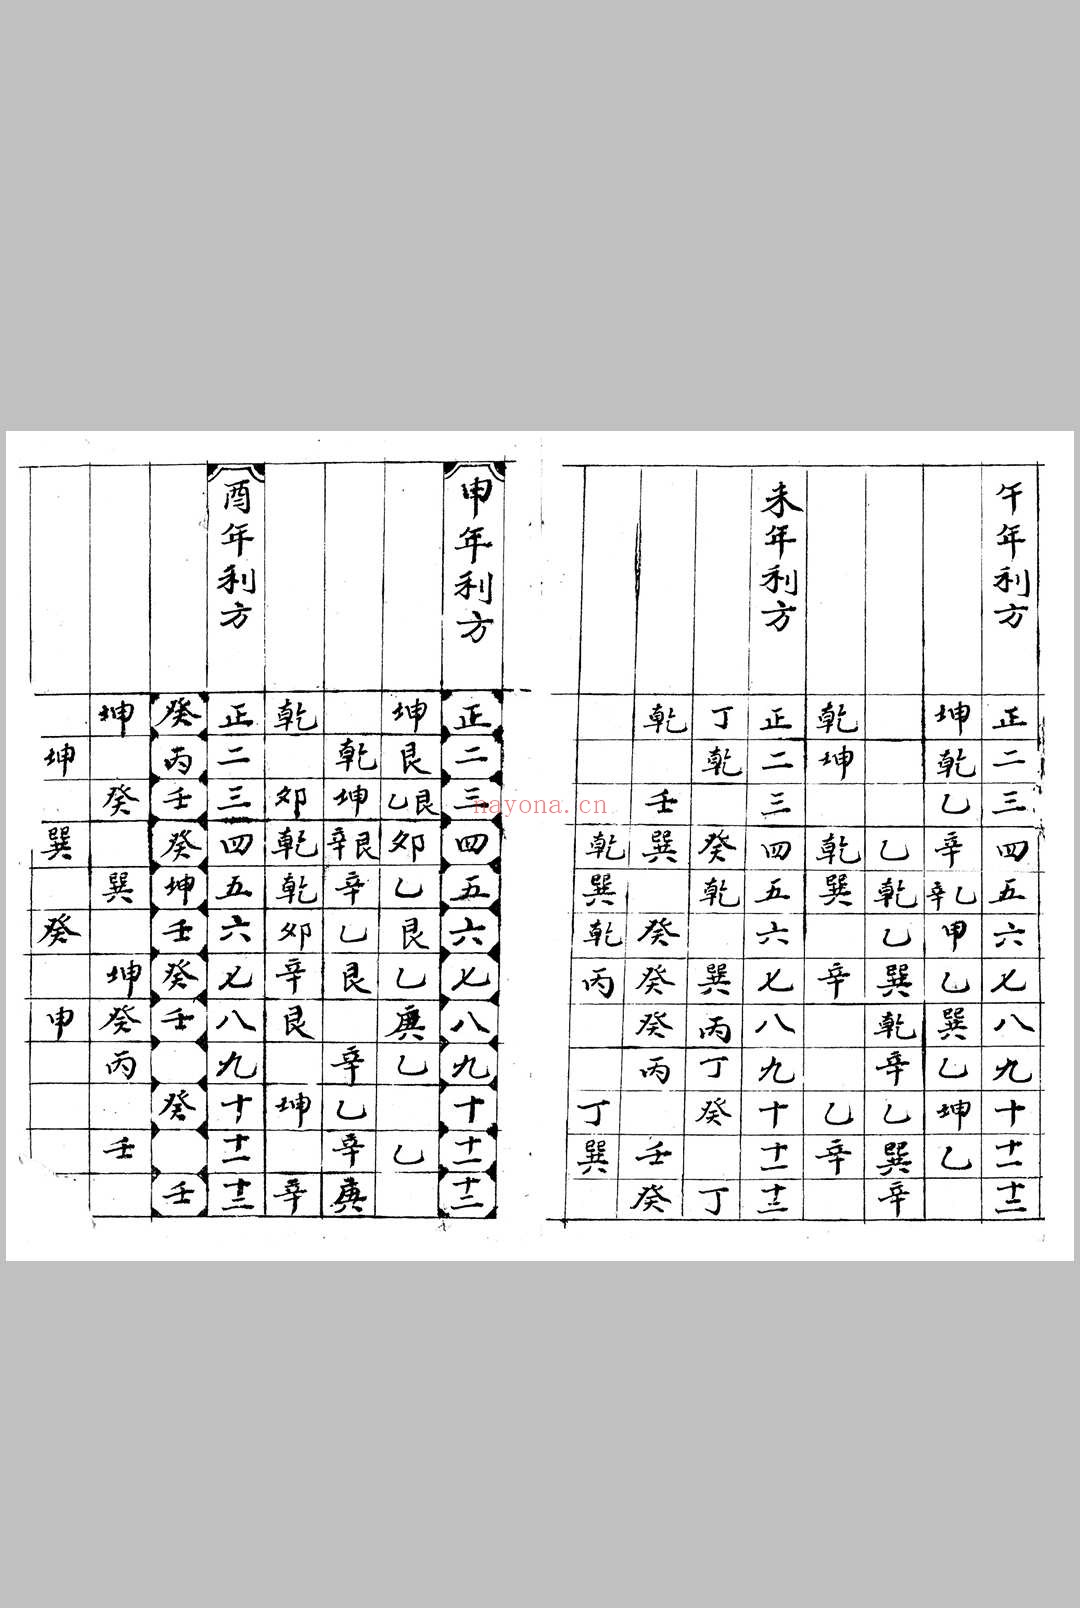 午年利方
正 二 三 四 五 六 七 八 九 十 十一 十二
坤 乾 乙 辛 辛乙 甲 乙 巽 乙 坤 乙
乙 乾 乙 巽 乾 辛 乙 巽 辛
乾 坤 乾 巽 辛 乙 辛
未年利方
正 二 三 四 五 六 七 八 九 十 十一 十二
丁 乾 癸 乾 巽 丙 丁 癸 丁
乾 壬 巽 癸 癸 癸 丙 壬 癸
乾 巽 乾 丙 丁 巽
申年利方
正 二 三 四 五 六 七 八 九 十 十一 十二
坤 艮 乙艮 卯 乙 艮 乙 庚 乙 乙
乾 坤 辛艮 辛 乙 艮 辛 乙 辛 庚
乾 卯 乾 乾 卯 辛 艮 坤 辛
酉年利方
正 二 三 四 五 六 七 八 九 十 十一 十二
癸 丙 壬 癸 坤 壬 癸 壬 癸 壬
坤 癸 巽 坤 癸 丙 壬
坤 巽 癸 申
nayona.cn